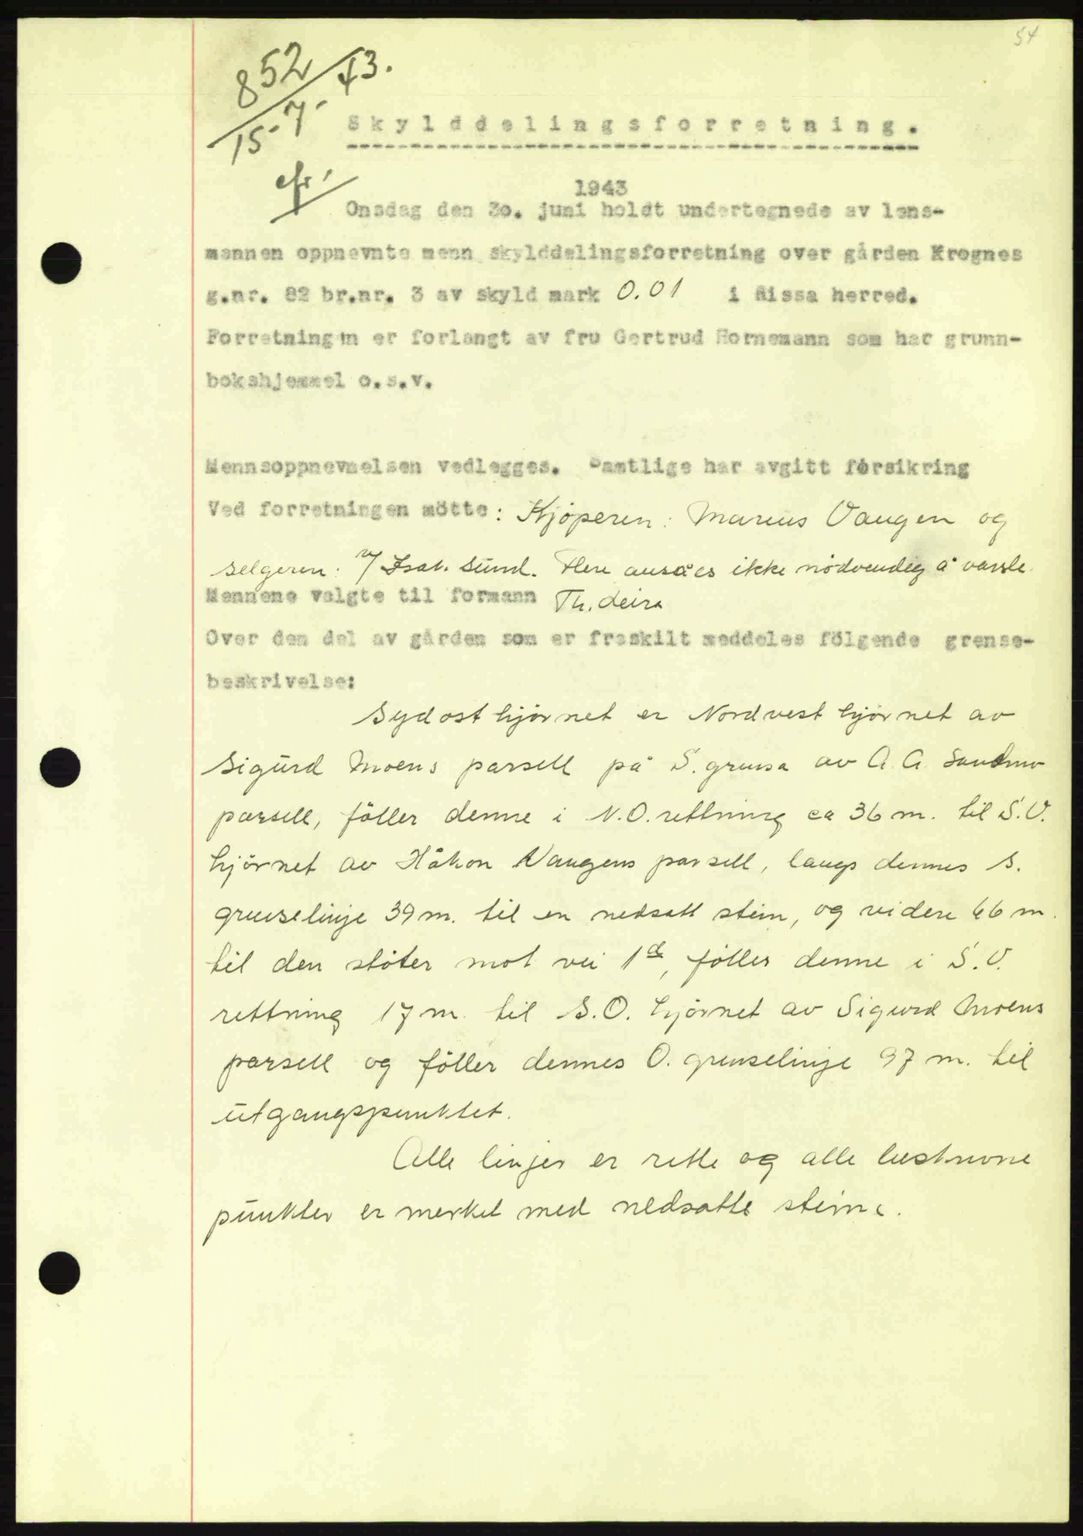 54
852
15-7-43.
efr.
Skylddelingsforretning.
1943
Onsdag den 30. juni holdt undertegnede av lens-
mannen oppnevnte menn skylddelingsforretning over gården Krognes
g.nr. 82 br.nr. 3 av skyld mark 0.01 i Rissa herred.
Forretningen er forlangt av fru Gertrud Hornemann som har grunn-
bokshjemmel o.s.v.
Mennsoppnevnelsen vedlegges. Samtlige har avgitt forsikring
Ved forretningen mötte: Kjöperen: Marius Vaugen og
selgeren: v/ Isak. Sund. Flere ansåes ikke nödvendig å varsle.
Mennene valgte til formann Th. Leira
Over den del av gården som er fraskilt meddeles fölgende grense-
beskrivelse:
Sydost hjörnet er Nordvest hjörnet av
Sigurd Moens parsell på S. grensa av A. A. Sandmo
parsell, föller denne i N.O. rettning ca 36 m. til S.V.
hjörnet av Håkon Vaugens parsell, langs dennes S.
grenselinje 39 m. til en nedsatt stein, og videre 66 m.
til den stöter mot vei 1de, föller denne i S.V.
rettning 17 m. til S.O. hjörnet av Sigurd Moens
parsell og föller dennes O. grenselinje 97 m. til
utgangspunktet.
Alle linjer er rette og alle beskrevne
punkter er merket med nedsatte steine.